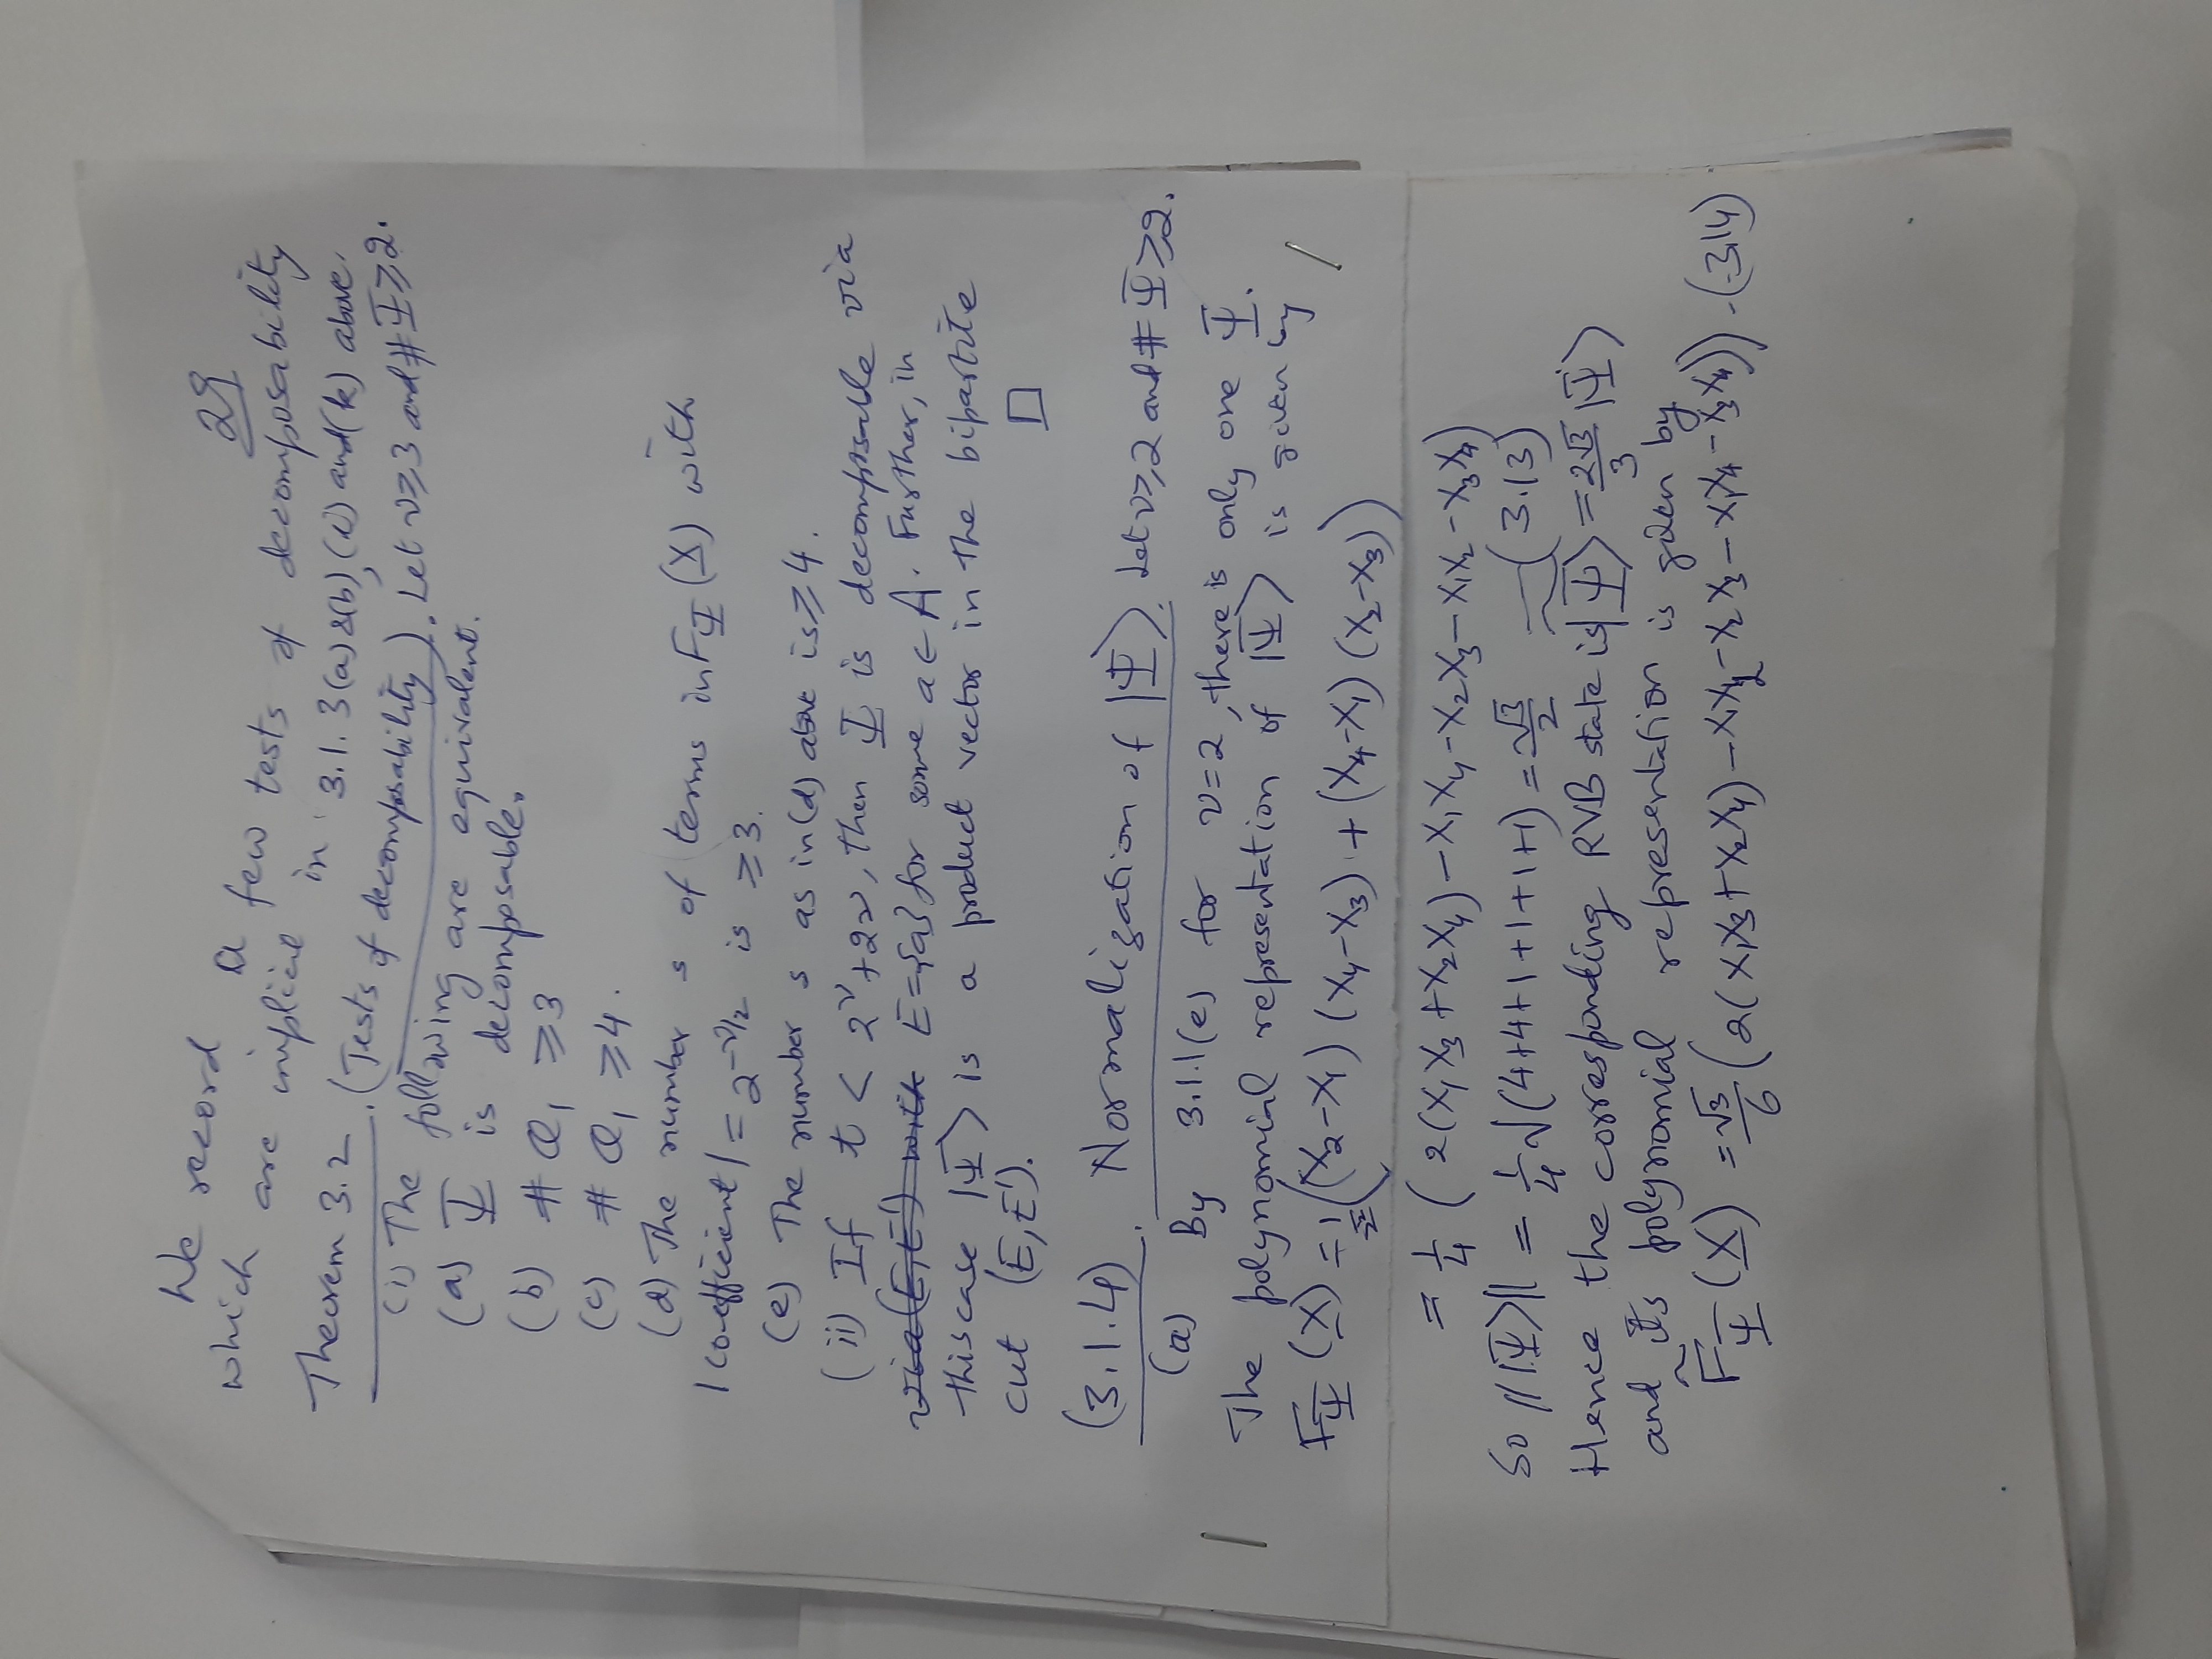 29
We record a few tests of decomposability
which are implicit in 3.1.3(a)&(b), (i) and (k) above.
Theorem 3.2. (Tests of decomposability). Let ν⩾3 and # Ψ⩾2.
(i) The following are equivalent.
(a) Ψ is decomposable.
(b) # Q₁ ⩾3
(c) # Q₁ ⩾4.
(d) The number s of terms in F_Ψ (X) with
|coefficient| = 2^{-ν/2} is ⩾3.
(e) The number s as in (d) above is ⩾4.
(ii) If t < 2^ν+2ν, then Ψ is decomposable via
via (E,E') with E={a} for some a∈A. Further, in
this case |Ψ⟩ is a product vector in the bipartite
cut (E,E'). □
(3.1.4). Normalization of |Ψ⟩. Let ν⩾2 and # Ψ⩾2.
(a) By 3.1.1(e) for ν=2, there is only one Ψ.
The polynomial representation of |Ψ⟩ is given by
F_Ψ (X) = 1/2² ((X₂-X₁) (X₄-X₃) + (X₄-X₁) (X₂-X₃))
= 1/4 (2(X₁X₃+X₂X₄)-X₁X₄-X₂X₃-X₁X₂-X₃X₄)
So || |Ψ⟩|| = 1/4 √(4+4+1+1+1+1) = √3/2 —(3.13)
Hence the corresponding RVB state is |Ψ̃⟩ = 2√3/3 |Ψ⟩
and its polynomial representation is given by
F̃_Ψ (X) = √3/6 (2(X₁X₃+X₂X₄)-X₁X₂-X₂X₃-X₁X₄-X₃X₄)) -(3.14)